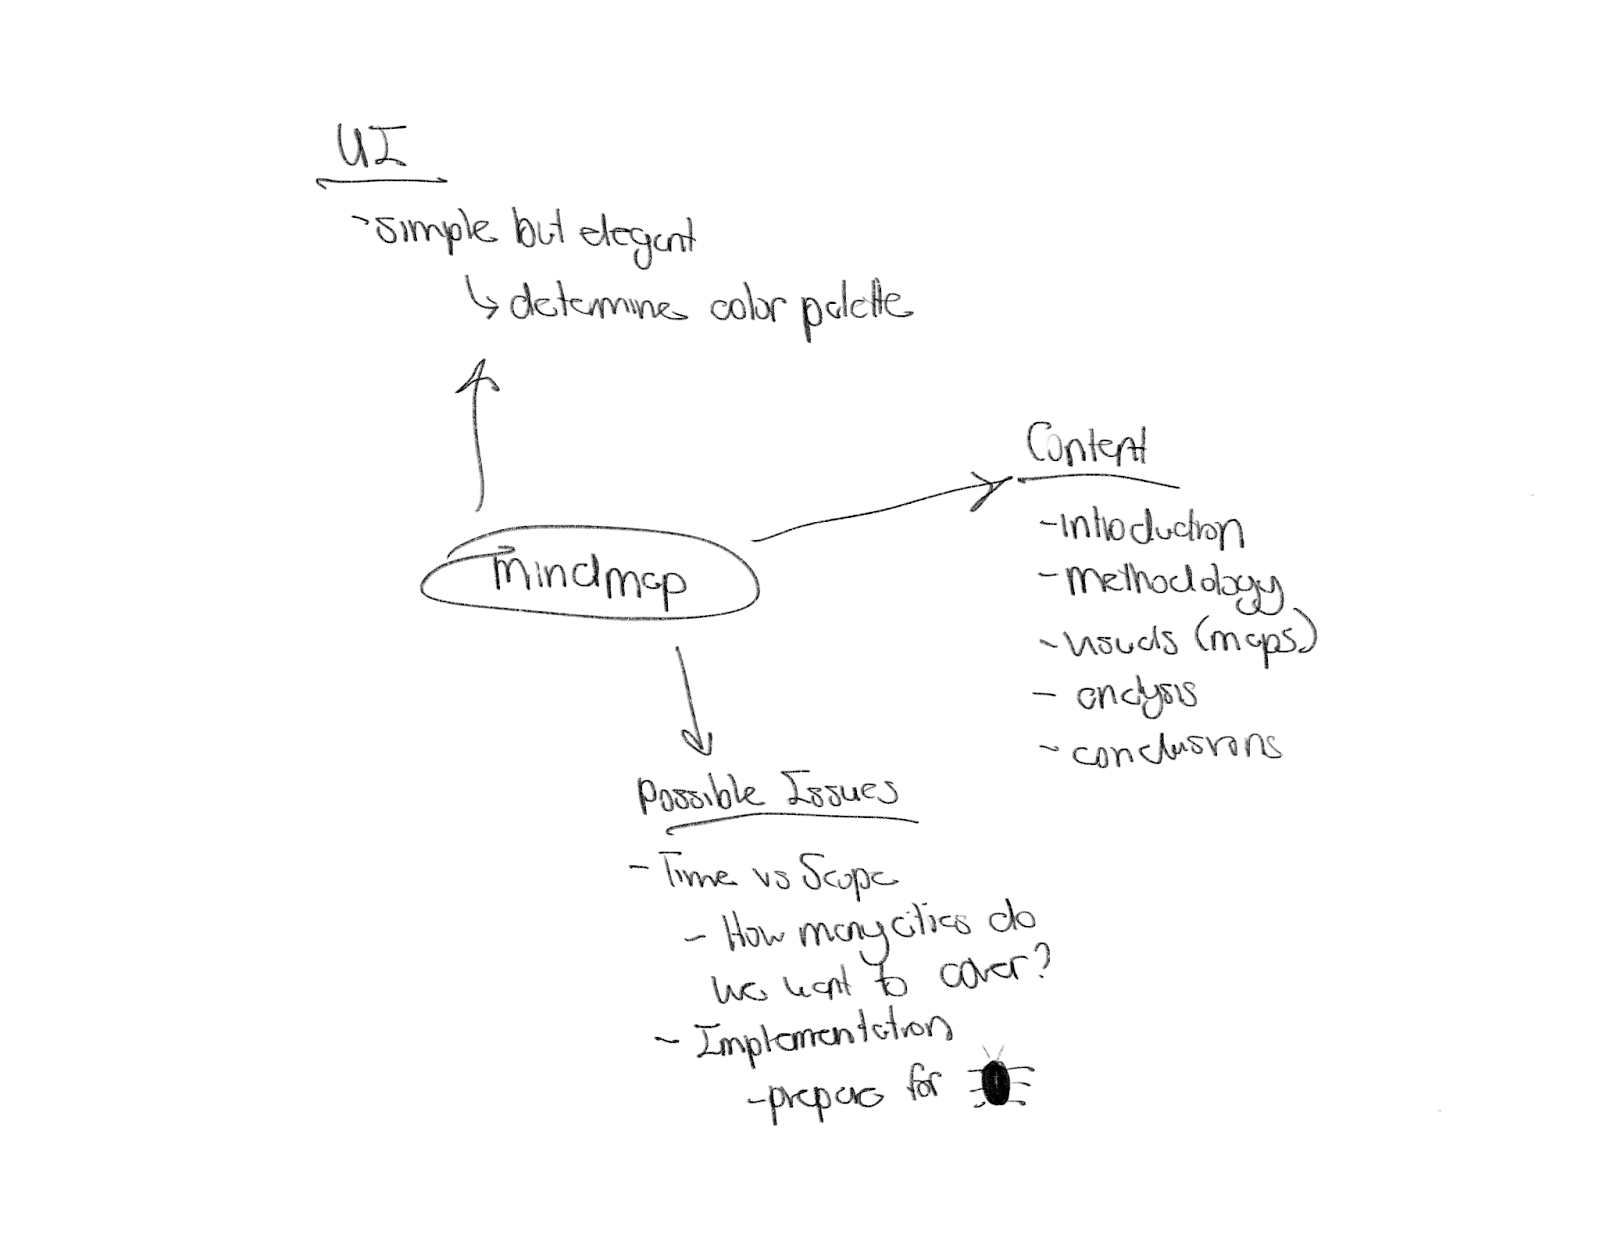 UI
- simple but elegant
↳ determine color palette
Content
- introduction
- methodology
- visuals (maps)
- analysis
- conclusions
mindmap
Possible Issues
- Time vs Scope
- How many cities do
we want to cover?
- Implementation
- prepare for